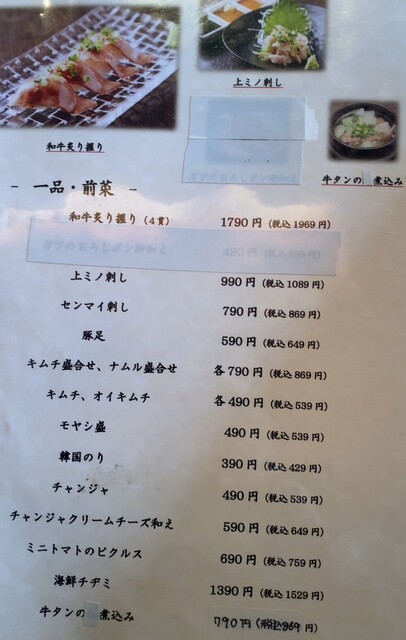 上ミノ刺し
和牛炙り握り
牛タンの 煮込み
- 一品・前菜 -
和牛炙り握り（4貫） 1790円（税込1969円）
ガツのおろしポン酢和え 490円
上ミノ刺し 990円（税込1089円）
センマイ刺し 790円（税込869円）
豚足 590円（税込649円）
キムチ盛合せ、ナムル盛合せ 各790円（税込869円）
キムチ、オイキムチ 各490円（税込539円）
モヤシ盛 490円（税込539円）
韓国のり 390円（税込429円）
チャンジャ 490円（税込539円）
チャンジャクリームチーズ和え 590円（税込649円）
ミニトマトのピクルス 690円（税込759円）
海鮮チヂミ 1390円（税込1529円）
牛タンの 煮込み 790円（税込869円）